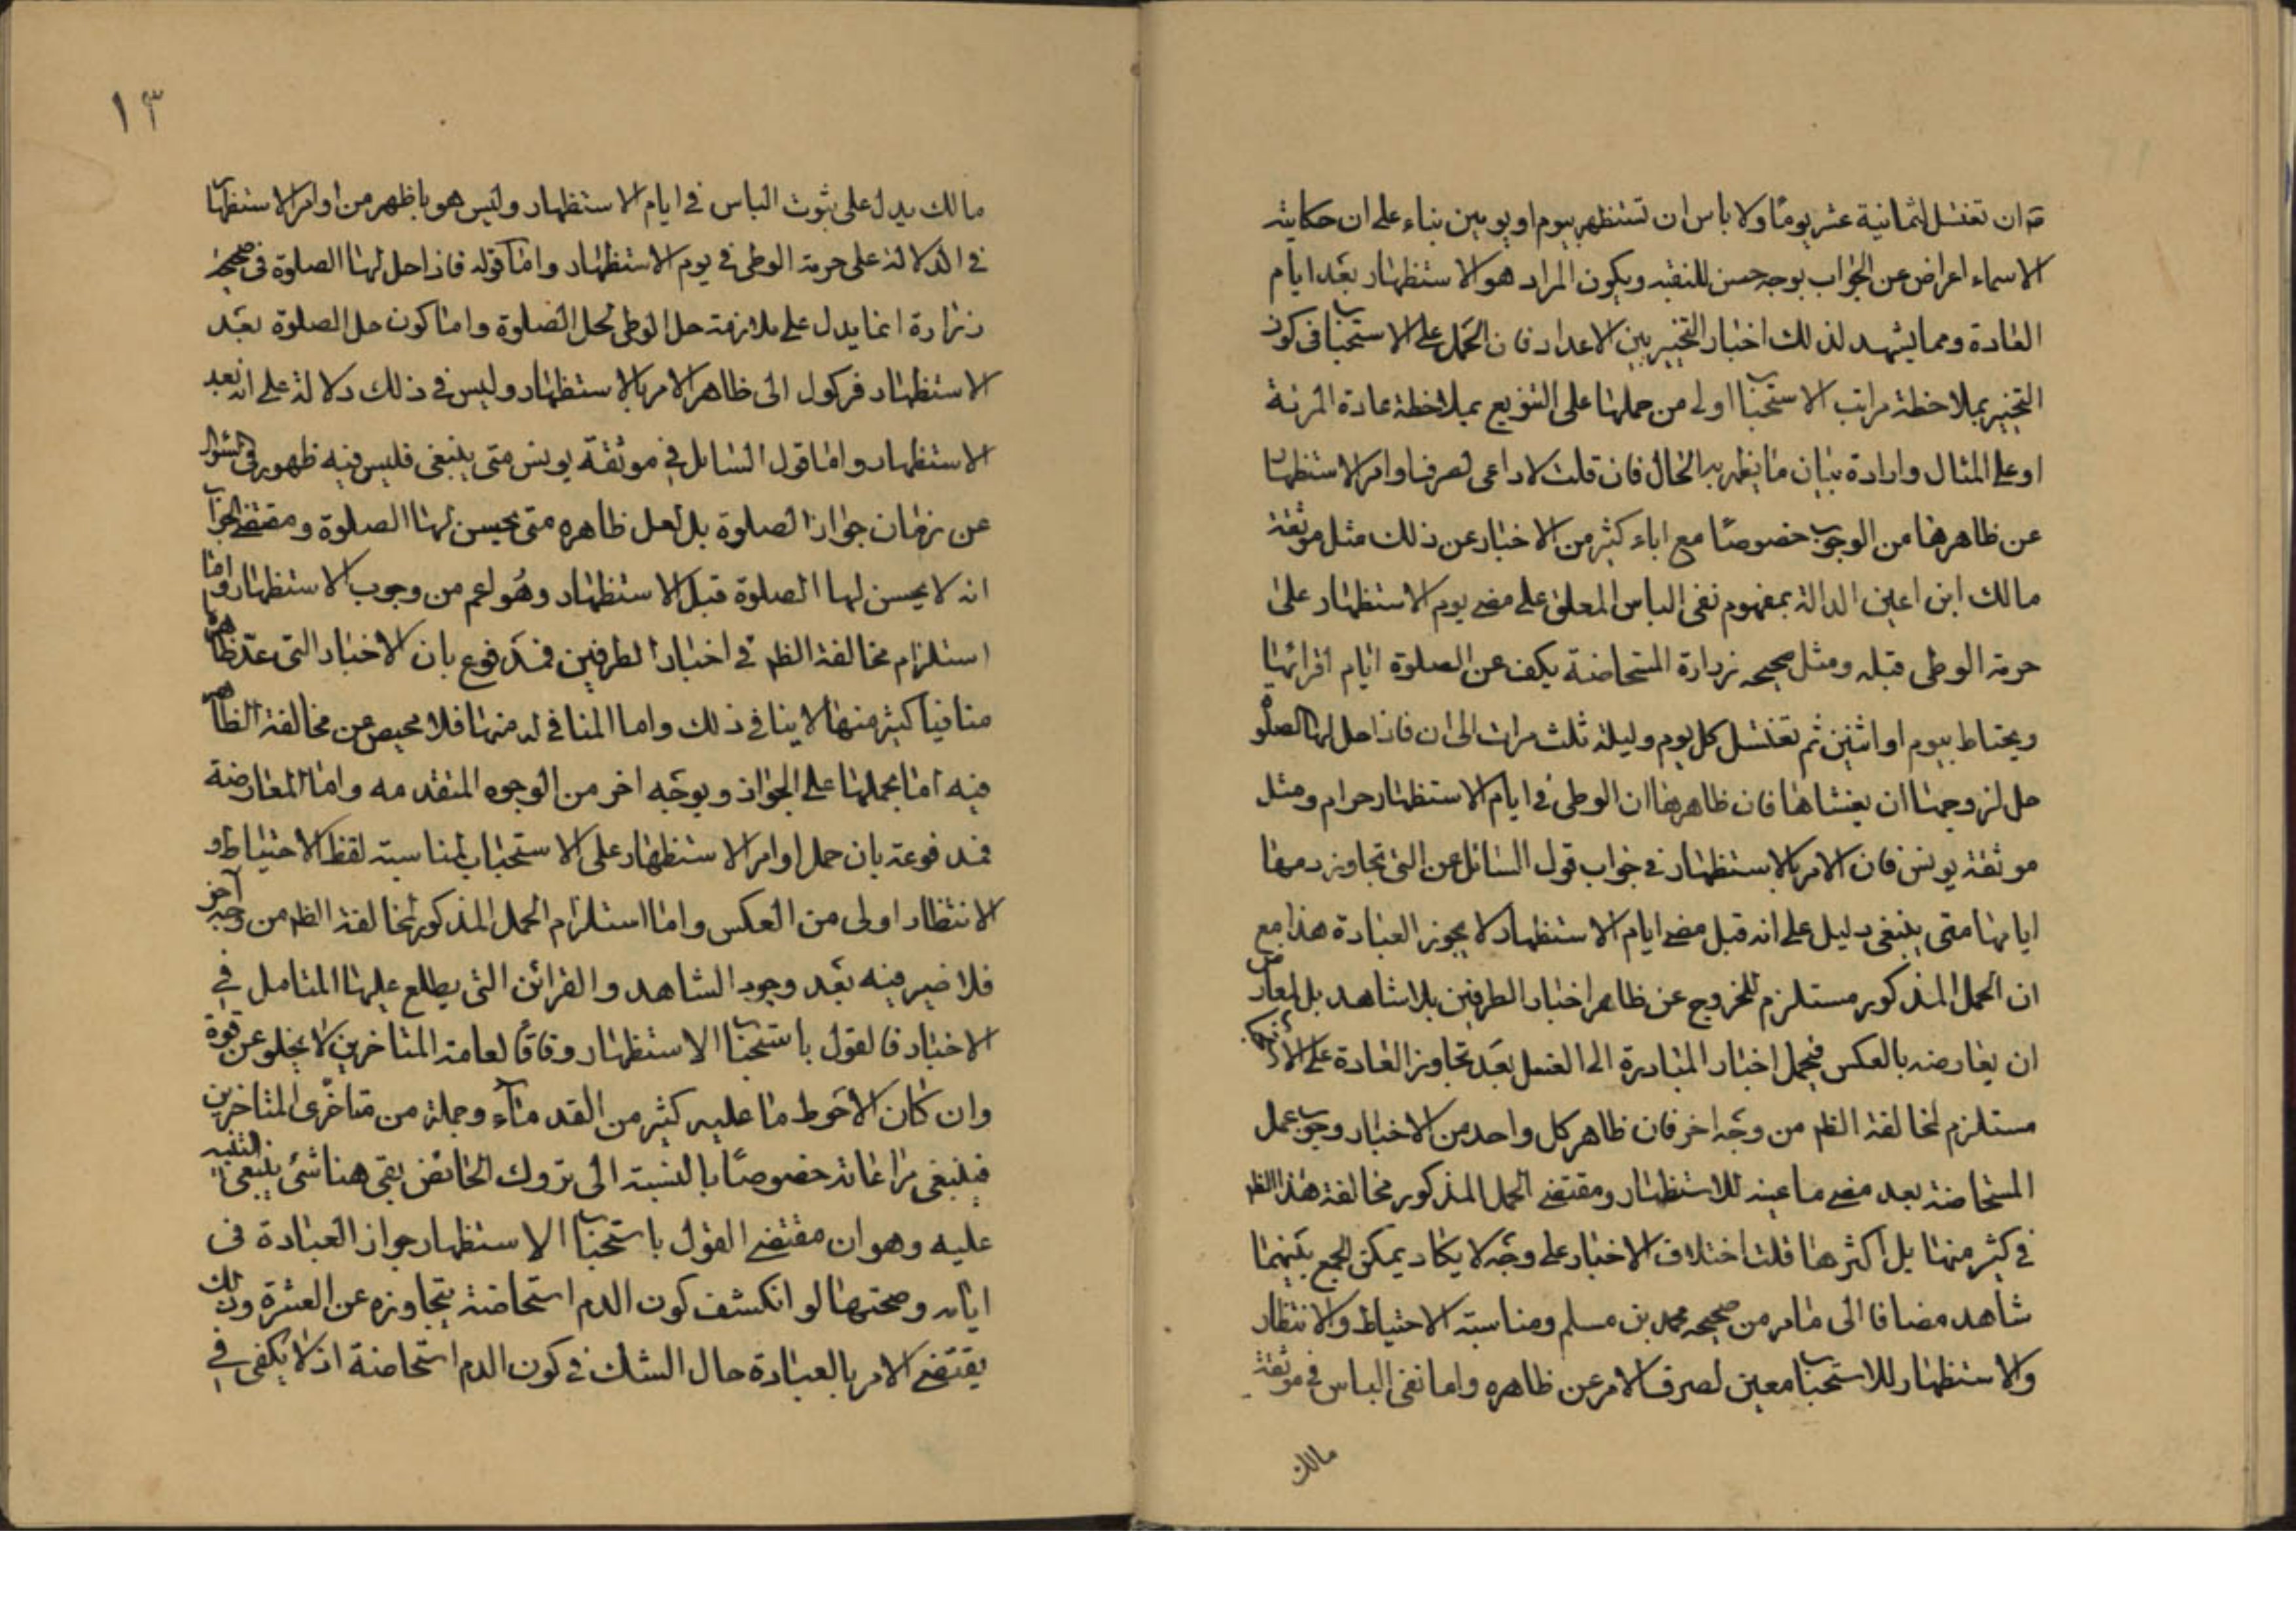 مة ان تغتسل لثمانية عشر يوما ولا باس ان تستظهر بيوم او يومين بناء على ان حكاية
الاسماء اعراض عن الجواب بوجه حسن للتقيه ويكون المراد هو الاستظهار بعد ايام
العادة ومما يشهد لذلك اخبار التخيير بين الاعداد فان الحمل على الاستحباب فى كون
التخيير بملاحظة مراتب الاستحباب اولى من حملها على التنويع بملاحظة عادة المرئة
او على المثال وارادة بيان ما يظهر به الحال فان قلت لا داعى لصرف اوامر الاستظهار
عن ظاهرها من الوجوب خصوصا مع اباء كثير من الاخبار عن ذلك مثل موثقة
مالك ابن اعين الدالة بمفهوم نفى الباس المعلق على مضى يوم الاستظهار على
حرمة الوطى قبله ومثل صحيحه زرارة المستحاضة يكف عن الصلوة ايام اقرائها
ويحتاط بيوم او اثنين ثم تغتسل كل يوم وليلة ثلث مرات الى ان فاذا حل لها الصلوة
حل لزوجها ان يغشاها فان ظاهرها ان الوطى فى ايام الاستظهار حرام ومثل
موثقة يونس فان الامر بالاستظهار فى جواب قول السائل عن التى تجاوز دمها
ايامها متى ينبغى دليل على انه قبل مضى ايام الاستظهار لا يجوز العبادة هذا مع
ان الحمل المذكور مستلزم للخروج عن ظاهر اخبار الطرفين بلا شاهد بل لمعارض
ان يعارضه بالعكس فيحمل اخبار المبادرة الى الغسل بعد تجاوز العادة على
مستلزم لمخالفة الظم من وجه اخر فان ظاهر كل واحد من الاخبار وجوب عمل
المستحاضة بعد مضى ما عينه للاستظهار ومقتضى الحمل المذكور مخالفة هذا الظم
فى كثير منها بل اكثرها قلت اختلاف الاخبار على وجه لا يكاد يمكن الجمع بينهما
شاهد مضافا الى مامر من صحيحه محمد بن مسلم ومناسبة الاحتياط والانتظار
والاستظهار للاستحباب معين لصرف الامر عن ظاهره واما نفى الباس فى موثقة
مالك
١٣
مالك يدل على ثبوت الباس فى ايام الاستظهار وليس هو باظهر من اوامر الاستظهار
فى الدلالة على حرمة الوطى فى يوم الاستظهار واما قوله فاذا حل لها الصلوة فى صحيحة
زرارة انما يدل على ملازمة حل الوطى لحل الصلوة واما كون حل الصلوة بعد
الاستظهار فركول الى ظاهر الامر بالاستظهار وليس فى ذلك دلالة على انه بعد
الاستظهار واما قول السائل فى موثقة يونس متى ينبغى فليس فيه ظهور فى السؤال
عن زمان جواز الصلوة بل لعل ظاهره متى يحسن لها الصلوة ومقتضى الجواب
انه لا يحسن لها الصلوة قبل الاستظهار وهو اعم من وجوب الاستظهار واما
استلزام مخالفة الظم فى اخبار الطرفين فمدفوع بان الاخبار التى عد ظاهرها
منافيا كثير منها لا ينافى ذلك واما المنافى له منها فلا محيص عن مخالفة الظاهر
فيه اما بحملها على الجواز وبوجه اخر من الوجوه المتقدمه واما المعارضة
فمدفوعة بان حمل اوامر الاستظهار على الاستحباب لمناسبة لفظ الاحتياط و
الانتظار اولى من العكس واما استلزام الحمل المذكور لمخالفة الظم من وجه آخر
فلا ضير فيه بعد وجود الشاهد والقرائن التى يطلع عليها المتامل فى
الاخبار فالقول باستحباب الاستظهار وفاقا لعامة المتاخرين لا يخلو عن قوة
وان كان الاحوط ما عليه كثير من القدماء وجملة من متاخرى المتاخرين
فينبغى مراعاته خصوصا بالنسبة الى تروك الحائض بقى هنا شئ ينبغى التنبيه
عليه وهو ان مقتضى القول باستحباب الاستظهار جواز العبادة فى
ايامه وصحتها لو انكشف كون الدم استحاضة بتجاوزه عن العشرة وذلك
يقتضى الامر بالعبادة حال الشك فى كون الدم استحاضة اذ لا يكفى فى